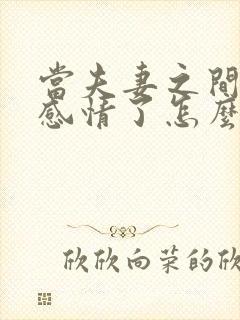 當夫妻之間
感情了怎麼
欣欣向荣的欣